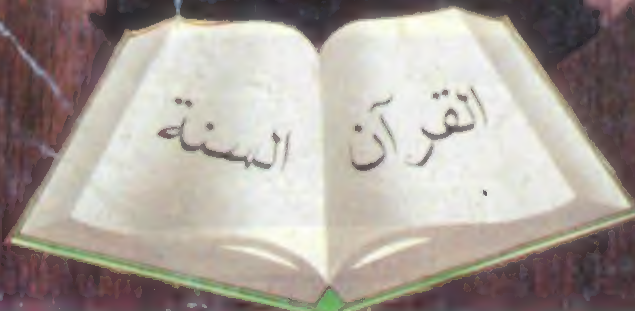 القرآن السنة